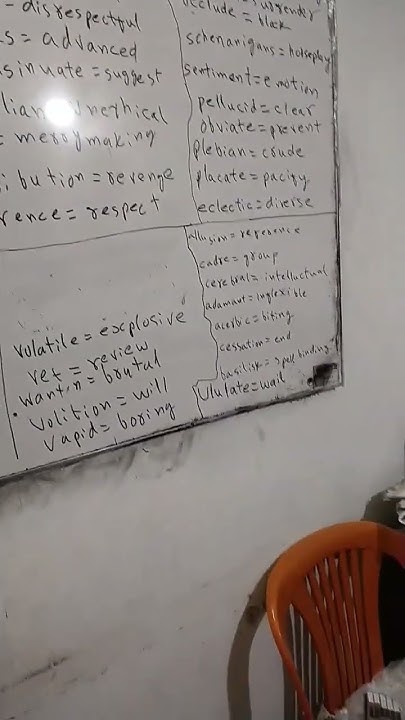 - disrespectful
s = advanced
sinuate = suggest
= merrymaking
bution = revenge
rence = respect
surrender
occlude = block
schenanigans = horseplay
sentiment = emotion
pellucid = clear
obviate = prevent
plebian = crude
placate = pacify
eclectic = diverse
volatile = explosive
vet = review
wanton = brutal
volition = will
vapid = boring
allusion = reference
cadre = group
cerebral = intellectual
adamant = inflexible
acerbic = biting
cessation = end
basilisk = spell binding
Ululate = wail